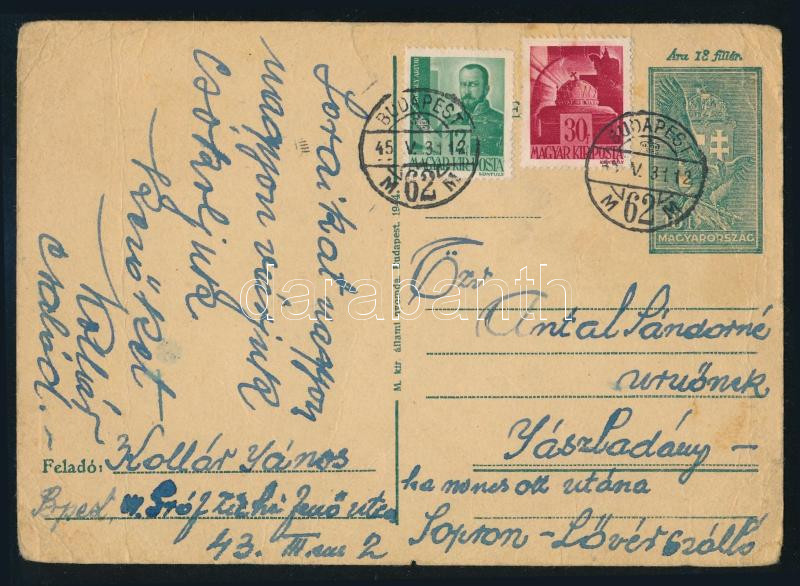 Ára 18 fillér.
30f
MAGYAR KIR. POSTA
MAGYAR KIR. POSTA
BUDAPEST
45 V. 31 12
62
BUDAPEST
45 V. 31 12
62
MAGYARORSZÁG
Soraikat nagyon
nagyon várjuk
Csókoljuk
Kollár
család.-
M. kir. állami nyomda, Budapest,
Özv
Antal Sándorné
úrnőnek
Jászladány -
ha nincs ott utána
Sopron - Lővér szálló
Feladó: Kollár János
Bpest, Gróf Zichi Jenő utca
43. III. em 2
darabanth